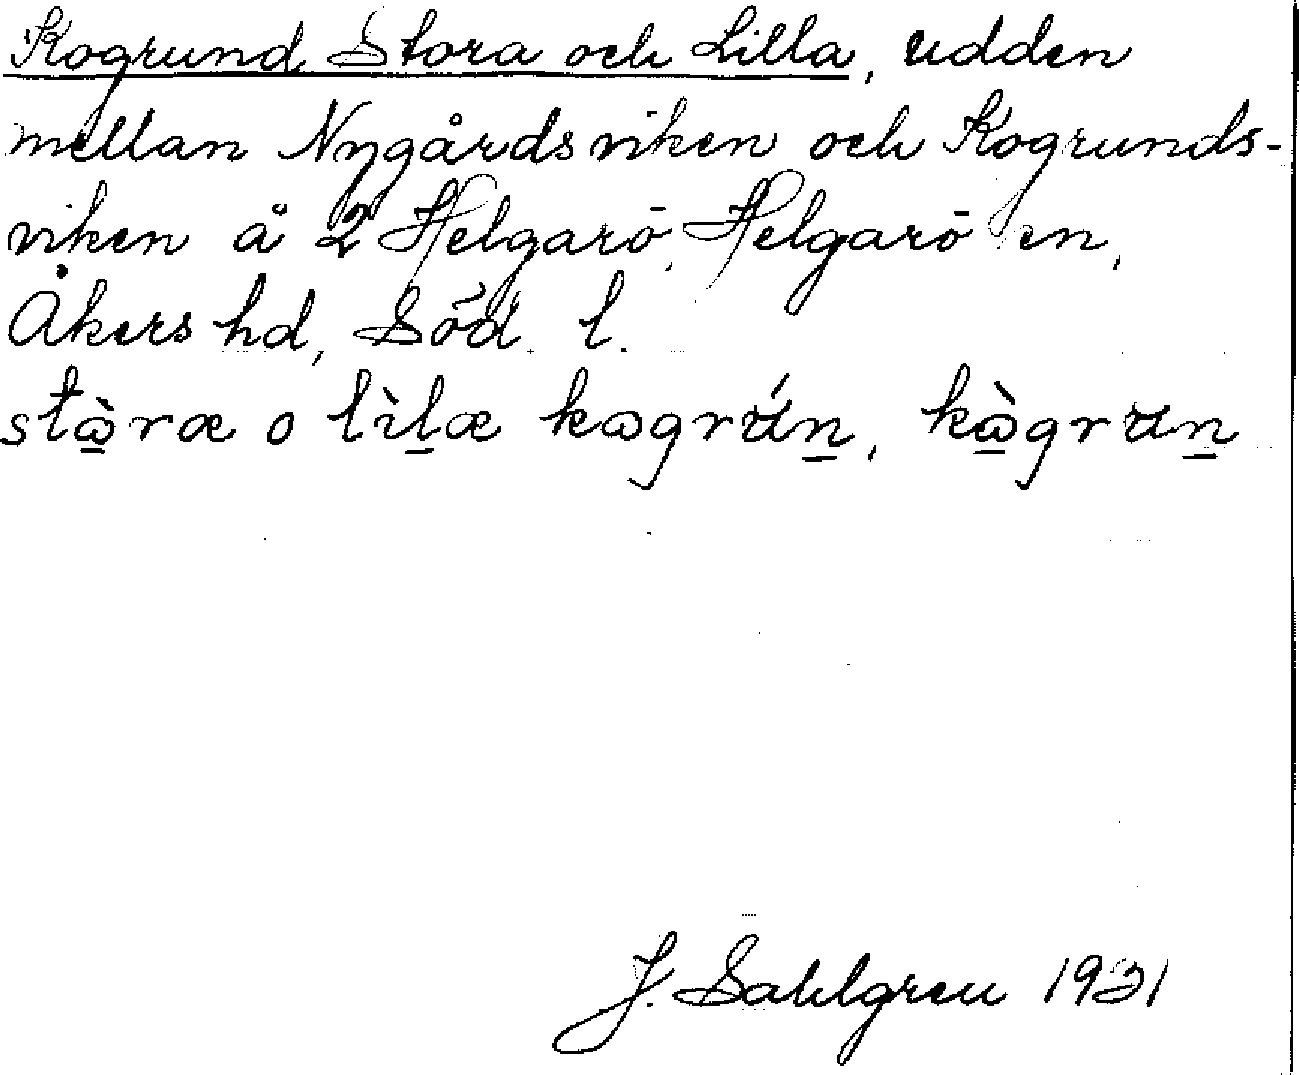 Kogrund Stora och Lilla, udden
mellan Nygårdsviken och Kogrunds-
viken å 2 Helgarö, Helgarö en,
Åkers hd, Söd. l.
stɷ̲̀ræ o lìl̲æ kɷgrʉ́n̲, kɷ̲̀grʉn̲
J. Sahlgren 1931